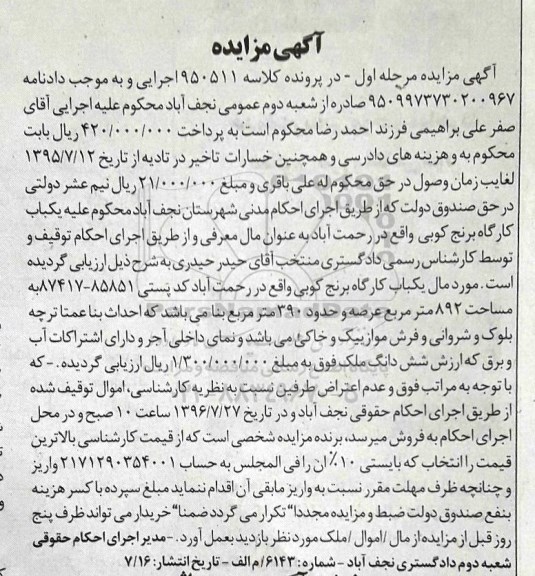 آگهی مزایده
آگهی مزایده مرحله اول - در پرونده کلاسه ۹۵۰۵۱۱ اجرایی و به موجب دادنامه
۹۵۰۹۹۷۳۷۳۰۲۰۰۹۶۷ صادره از شعبه دوم عمومی نجف آباد محکوم علیه اجرایی آقای
صفر علی براهیمی فرزند احمد رضا محکوم است به پرداخت ۴۲۰/۰۰۰/۰۰۰ ریال بابت
محکوم به و هزینه های دادرسی و همچنین خسارات تاخیر در تادیه از تاریخ ۱۳۹۵/۷/۱۲
لغایب زمان وصول در حق محکوم له علی باقری و مبلغ ۲۱/۰۰۰/۰۰۰ ریال نیم عشر دولتی
در حق صندوق دولت که از طریق اجرای احکام مدنی شهرستان نجف آباد محکوم علیه یکباب
کارگاه برنج کوبی واقع در رحمت آباد به عنوان مال معرفی و از طریق اجرای احکام توقیف و
توسط کارشناس رسمی دادگستری منتخب آقای حیدر حیدری به شرح ذیل ارزیابی گردیده
است . مورد مال یکباب کارگاه برنج کوبی واقع در رحمت آباد کد پستی ۸۵۸۵۱-۸۷۴۱۷ به
مساحت ۸۹۲ متر مربع عرصه و حدود ۳۹۰ متر مربع بنا می باشد که احداث بنا عمتا ترچه
بلوک و شروانی و فرش موازییک و خاکی می باشد و نمای داخلی آجر و دارای اشتراکات آب
و برق که ارزش شش دانگ ملک فوق به مبلغ ۱/۳۰۰/۰۰۰/۰۰۰ ریال ارزیابی گردیده . - که
با توجه به مراتب فوق و عدم اعتراض طرفین نسبت به نظریه کارشناسی، اموال توقیف شده
از طریق اجرای احکام حقوقی نجف آباد و در تاریخ ۱۳۹۶/۷/۲۷ ساعت ۱۰ صبح و در محل
اجرای احکام به فروش میرسد، برنده مزایده شخصی است که از قیمت کارشناسی بالاترین
قیمت را انتخاب که بایستی ۱۰٪ ان را فی المجلس به حساب ۲۱۷۱۲۹۰۳۵۴۰۰۱ واریز
و چنانچه ظرف مهلت مقرر نسبت به واریز مابقی آن اقدام ننماید مبلغ سپرده با کسر هزینه
بنفع صندوق دولت ضبط و مزایده مجددا" تکرار می گردد ضمنا" خریدار می تواند ظرف پنج
روز قبل از مزایده از مال /اموال /ملک مورد نظر بازدید بعمل آورد. -مدیر اجرای احکام حقوقی
شعبه دوم دادگستری نجف آباد - شماره : ۶۱۴۳/م الف - تاریخ انتشار: ۷/۱۶